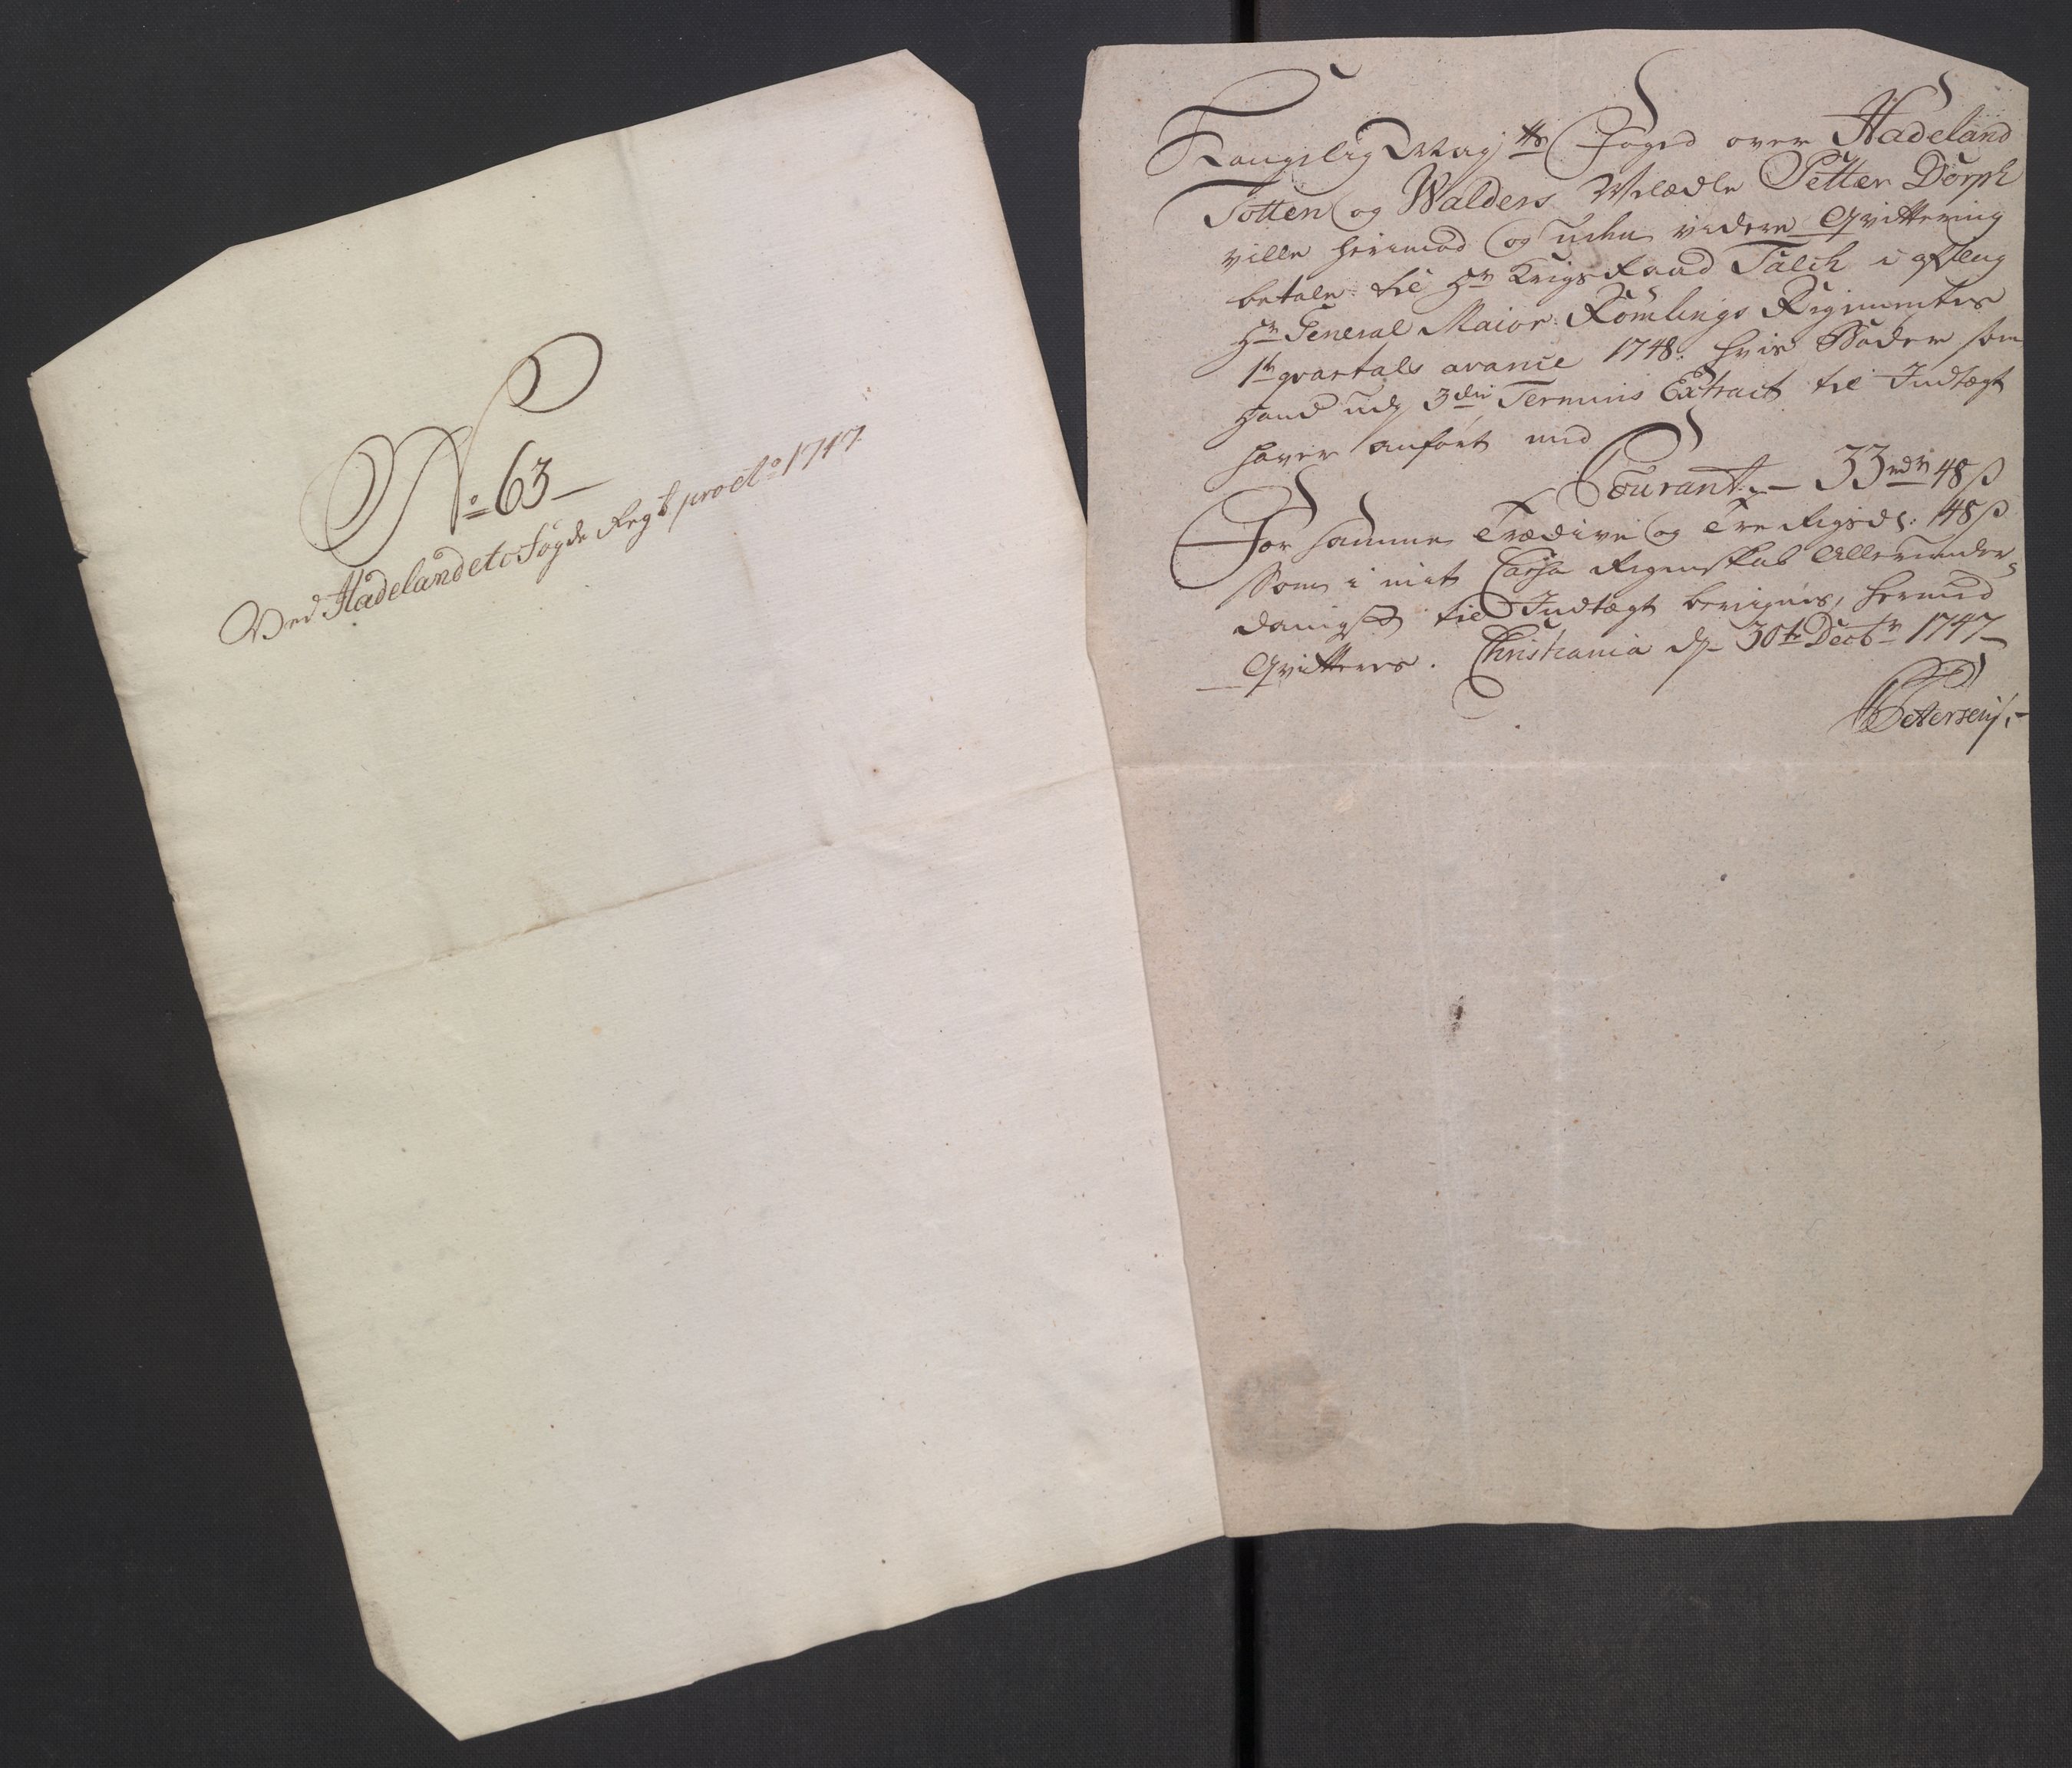 No 63
Ved Hadeland etc Fogde Regsk pro Ao 1747
Kongelig May:ts Foged over Hadeland
Totten og Walders Velædle Petter Dorph
ville herimod og uden videre Qvittering
betale til Hr Krigs Raad Falck i afslag
Hr General Maior Rømlings Regimentes
1te qvartals avance 1748: hvis Bøder som
Hand udj 3die Terminis Extract til Indtægt
haver anført med
Courant – 33 rdr 48 s
For samme Trædive og Tre Rigsdr: 48 s
Som i mit Cassa Regenskab Allerunder-
danigst til Indtægt beregnes, hermed
Qvitteres. Christiania d. 30te Decbr 1747
Petersen